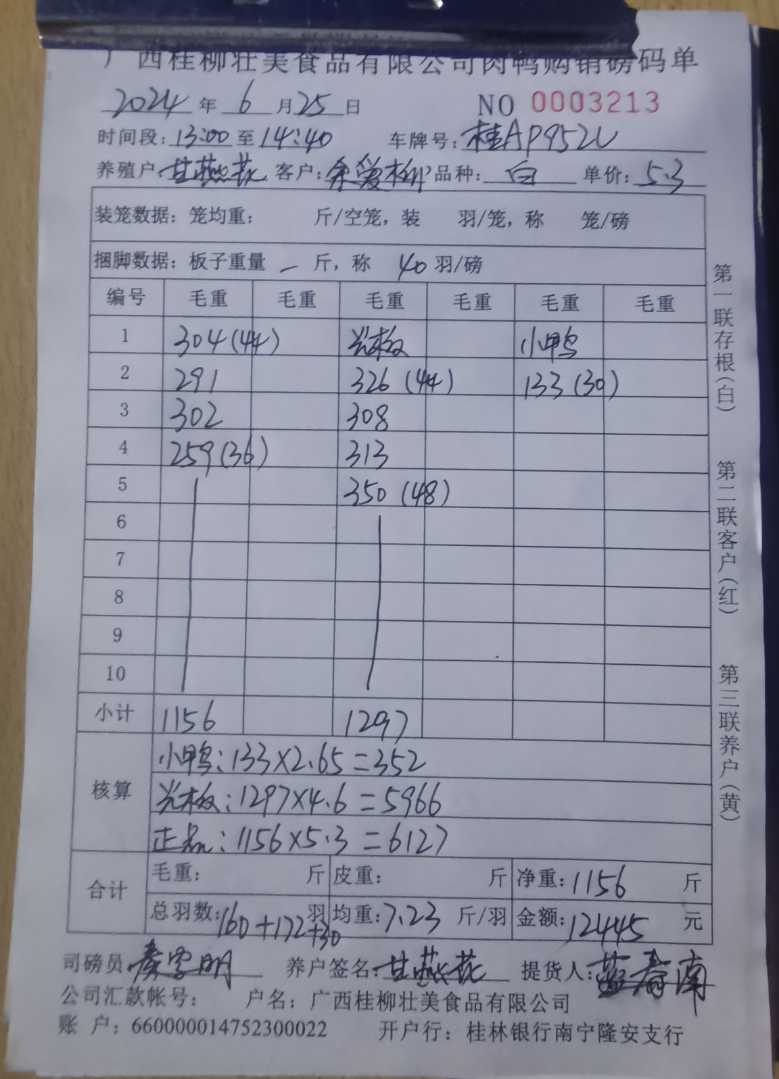 广西桂柳壮美食品有限公司肉鸭购销磅码单
2024 年 6 月 25 日 NO 0003213
时间段: 13:00 至 14:40 车牌号: 桂AP952U
养殖户: 甘燕花 客户: 余爱柳 品种: 白 单价: 5.3
装笼数据: 笼均重: 斤/空笼, 装 羽/笼, 称 笼/磅
捆脚数据: 板子重量 一 斤, 称 40 羽/磅
编号 毛重 毛重 毛重 毛重 毛重 毛重
1 304(44) 光板 小鸭
2 291 326 (44) 133 (30)
3 302 308
4 259(36) 313
5 350 (48)
6
7
8
9
10
小计 1156 1297
核算 小鸭: 133×2.65=352
光板: 1297×4.6=5966
正品: 1156×5.3=6127
合计 毛重: 斤 皮重: 斤 净重: 1156 斤
总羽数: 160+172+30 羽 均重: 7.23 斤/羽 金额: 12445 元
司磅员: 雪明 养户签名: 甘燕花 提货人: 南
公司汇款帐号: 户名: 广西桂柳壮美食品有限公司
账 户: 660000014752300022 开户行: 桂林银行南宁隆安支行
第一联存根(白) 第二联客户(红) 第三联养户(黄)